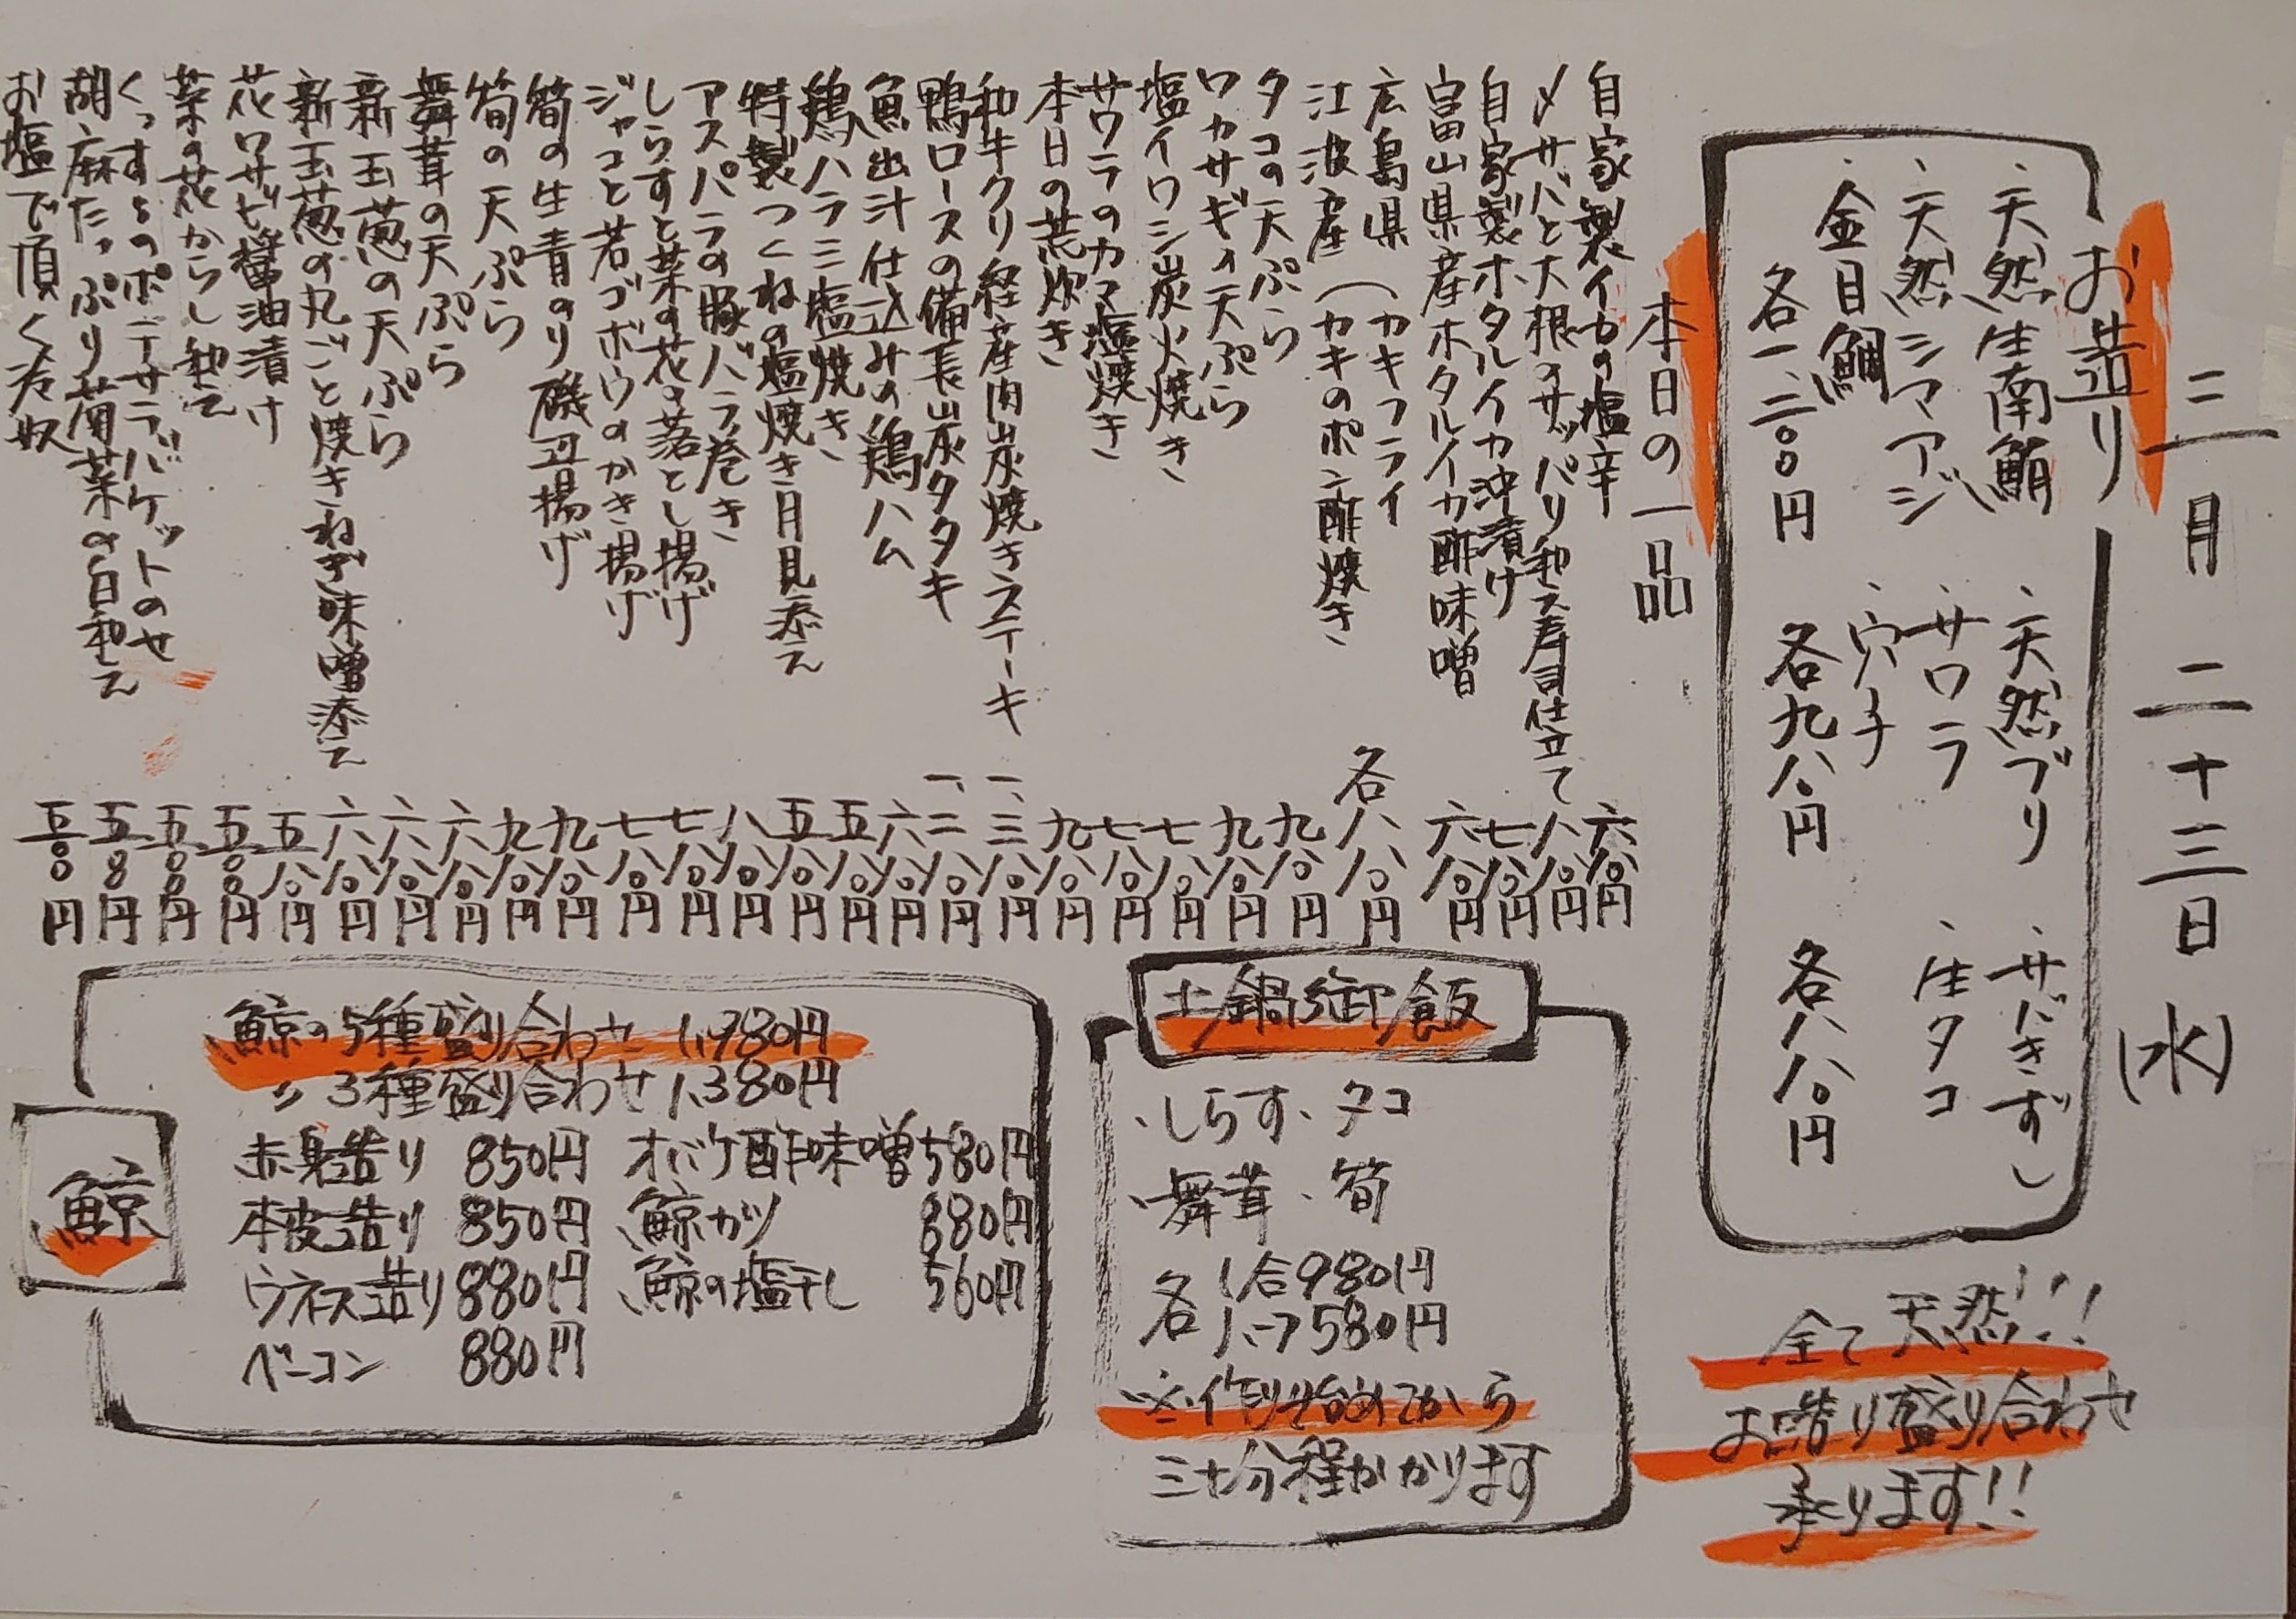 三月二十三日(水)
お造り
・天然生南鮪
・天然シマアジ
・金目鯛
各一、二〇〇円
・天然ブリ
・サワラ
・穴子
各九八〇円
・サバきずし
・生タコ
各八八〇円
全て天然!!!
お造り盛り合わせ
承ります!!
本日の一品
自家製イカの塩辛 六八〇円
〆サバと大根のサッパリ和え寿司仕立て 八八〇円
自家製ホタルイカ沖漬け 七八〇円
富山県産ホタルイカ酢味噌 六八〇円
広島県 (カキフライ
江波産 (カキのポン酢焼き
各八八〇円
タコの天ぷら 九八〇円
ワカサギの天ぷら 九八〇円
塩イワシ炭火焼き 七八〇円
サワラのカマ塩焼き 七八〇円
本日の荒炊き 九八〇円
和牛クリ経産肉炭焼きステーキ 一、三八〇円
鴨ロースの備長炭タタキ 一、二八〇円
魚出汁仕込みの鶏ハム 六八〇円
鶏ハラミ塩焼き 五八〇円
特製つくねの塩焼き月見添え 五八〇円
アスパラの豚バラ巻き 八八〇円
しらすと菜の花の落とし揚げ 七八〇円
ジャコと若ゴボウのかき揚げ 七八〇円
筍の生青のり磯辺揚げ 九八〇円
筍の天ぷら 九八〇円
舞茸の天ぷら 六八〇円
新玉葱の天ぷら 六八〇円
新玉葱の丸ごと焼きねぎ味噌添え 六八〇円
花ワサビ醤油漬け 五八〇円
菜の花からし和え 五〇〇円
くんすものポテサラバケットのせ 五〇〇円
胡麻たっぷり菊菜の白和え 五〇〇円
お塩で頂く冷奴 五〇〇円
土鍋御飯
・しらす・タコ
・舞茸・筍
各 1合980円
ハーフ580円
※作り始めてから
三十分程かかります
鯨
鯨の5種盛り合わせ 1,980円
〃 3種盛り合わせ 1,380円
赤身造り 850円 オバケ酢味噌 580円
本皮造り 850円 鯨カツ 880円
ウネス造り 880円 鯨の塩干し 560円
ベーコン 880円